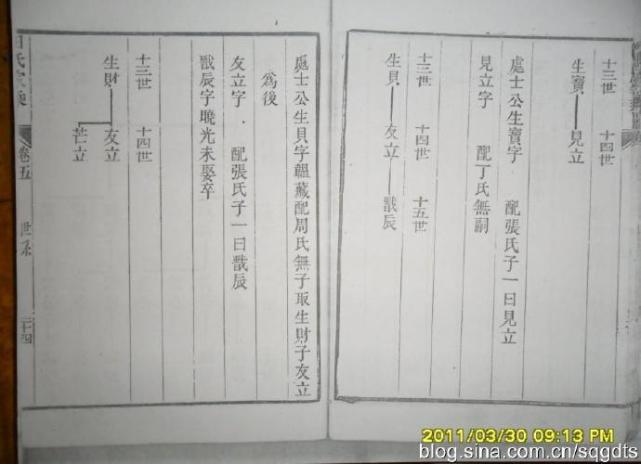 十三世 十四世
生寶 見立
處士公生寶字 配張氏子一曰見立
見立字 配丁氏無嗣
十三世 十四世 十五世
生貝 友立 戩辰
處士公生貝字韞藏配周氏無子取生財子友立
為後
友立字 配張氏子一曰戩辰
戩辰字曉光未娶卒
十三世 十四世
生財 友立
芒立
氏家乘 卷五 世系 二十四
2011/03/30 09:13 PM
blog.sina.com.cn/sqgdts